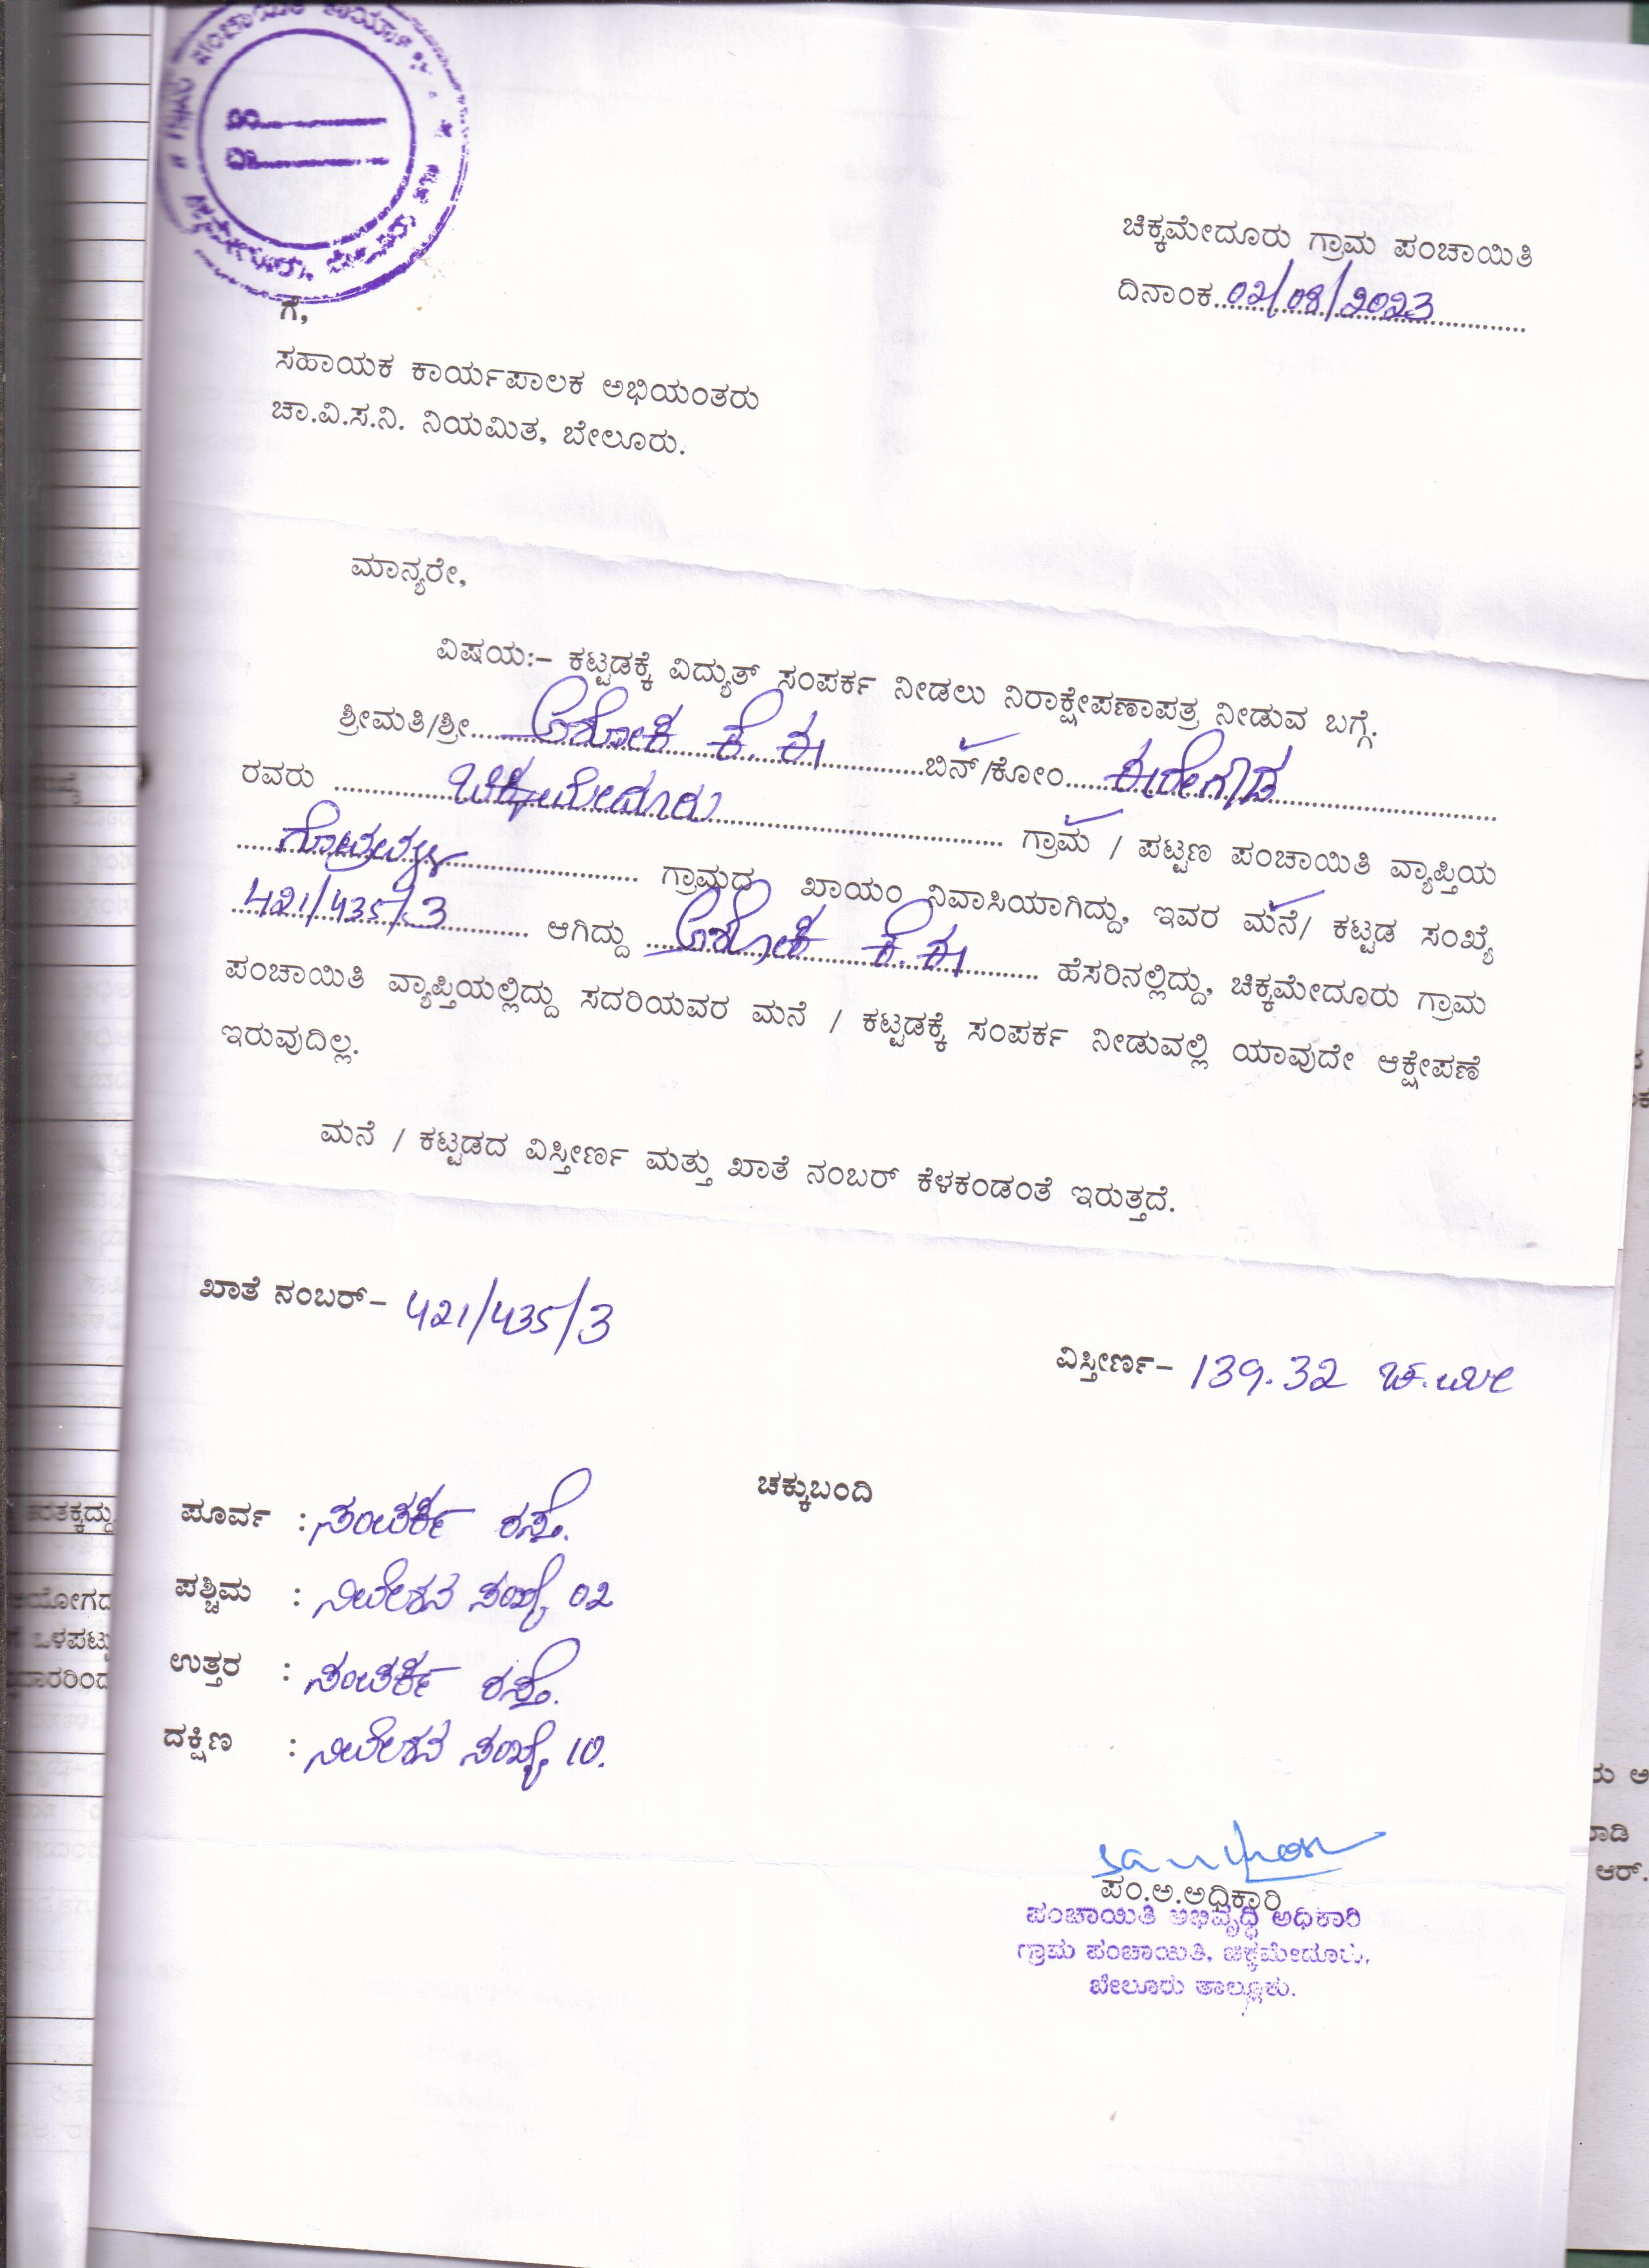 ಚಿಕ್ಕಮೇದೂರು ಗ್ರಾಮ ಪಂಚಾಯಿತಿ
ದಿನಾಂಕ 02/08/2023
ಗೆ,
ಸಹಾಯಕ ಕಾರ್ಯಪಾಲಕ ಅಭಿಯಂತರು
ಚಾ.ವಿ.ಸ.ನಿ. ನಿಯಮಿತ, ಬೇಲೂರು.
ಮಾನ್ಯರೇ,
ವಿಷಯ:– ಕಟ್ಟಡಕ್ಕೆ ವಿದ್ಯುತ್ ಸಂಪರ್ಕ ನೀಡಲು ನಿರಾಕ್ಷೇಪಣಾಪತ್ರ ನೀಡುವ ಬಗ್ಗೆ.
ಶ್ರೀಮತಿ/ಶ್ರೀ ಅಶೋಕ ಕೆ. ಈ ಬಿನ್/ಕೋಂ ಈರೇಗೌಡ
ರವರು ಚಿಕ್ಕಮೇದೂರು ಗ್ರಾಮ / ಪಟ್ಟಣ ಪಂಚಾಯಿತಿ ವ್ಯಾಪ್ತಿಯ
ಗ್ರಾಮದ ಖಾಯಂ ನಿವಾಸಿಯಾಗಿದ್ದು, ಇವರ ಮನೆ/ ಕಟ್ಟಡ ಸಂಖ್ಯೆ
421/435/3 ಆಗಿದ್ದು ಅಶೋಕ ಕೆ. ಈ ಹೆಸರಿನಲ್ಲಿದ್ದು, ಚಿಕ್ಕಮೇದೂರು ಗ್ರಾಮ
ಪಂಚಾಯಿತಿ ವ್ಯಾಪ್ತಿಯಲ್ಲಿದ್ದು ಸದರಿಯವರ ಮನೆ / ಕಟ್ಟಡಕ್ಕೆ ಸಂಪರ್ಕ ನೀಡುವಲ್ಲಿ ಯಾವುದೇ ಆಕ್ಷೇಪಣೆ
ಇರುವುದಿಲ್ಲ.
ಮನೆ / ಕಟ್ಟಡದ ವಿಸ್ತೀರ್ಣ ಮತ್ತು ಖಾತೆ ನಂಬರ್ ಕೆಳಕಂಡಂತೆ ಇರುತ್ತದೆ.
ಖಾತೆ ನಂಬರ್– 421/435/3
ವಿಸ್ತೀರ್ಣ– 139.32 ಚ.ಮೀ
ಚಕ್ಕುಬಂದಿ
ಪೂರ್ವ : ಸಂಪರ್ಕ ರಸ್ತೆ.
ಪಶ್ಚಿಮ : ನಿವೇಶನ ಸಂಖ್ಯೆ 02
ಉತ್ತರ : ಸಂಪರ್ಕ ರಸ್ತೆ.
ದಕ್ಷಿಣ : ನಿವೇಶನ ಸಂಖ್ಯೆ 10.
ಪಂ.ಅ.ಅಧಿಕಾರಿ
ಪಂಚಾಯಿತಿ ಅಭಿವೃದ್ಧಿ ಅಧಿಕಾರಿ
ಗ್ರಾಮ ಪಂಚಾಯಿತಿ, ಚಿಕ್ಕಮೇದೂರು,
ಬೇಲೂರು ತಾಲ್ಲೂಕು.